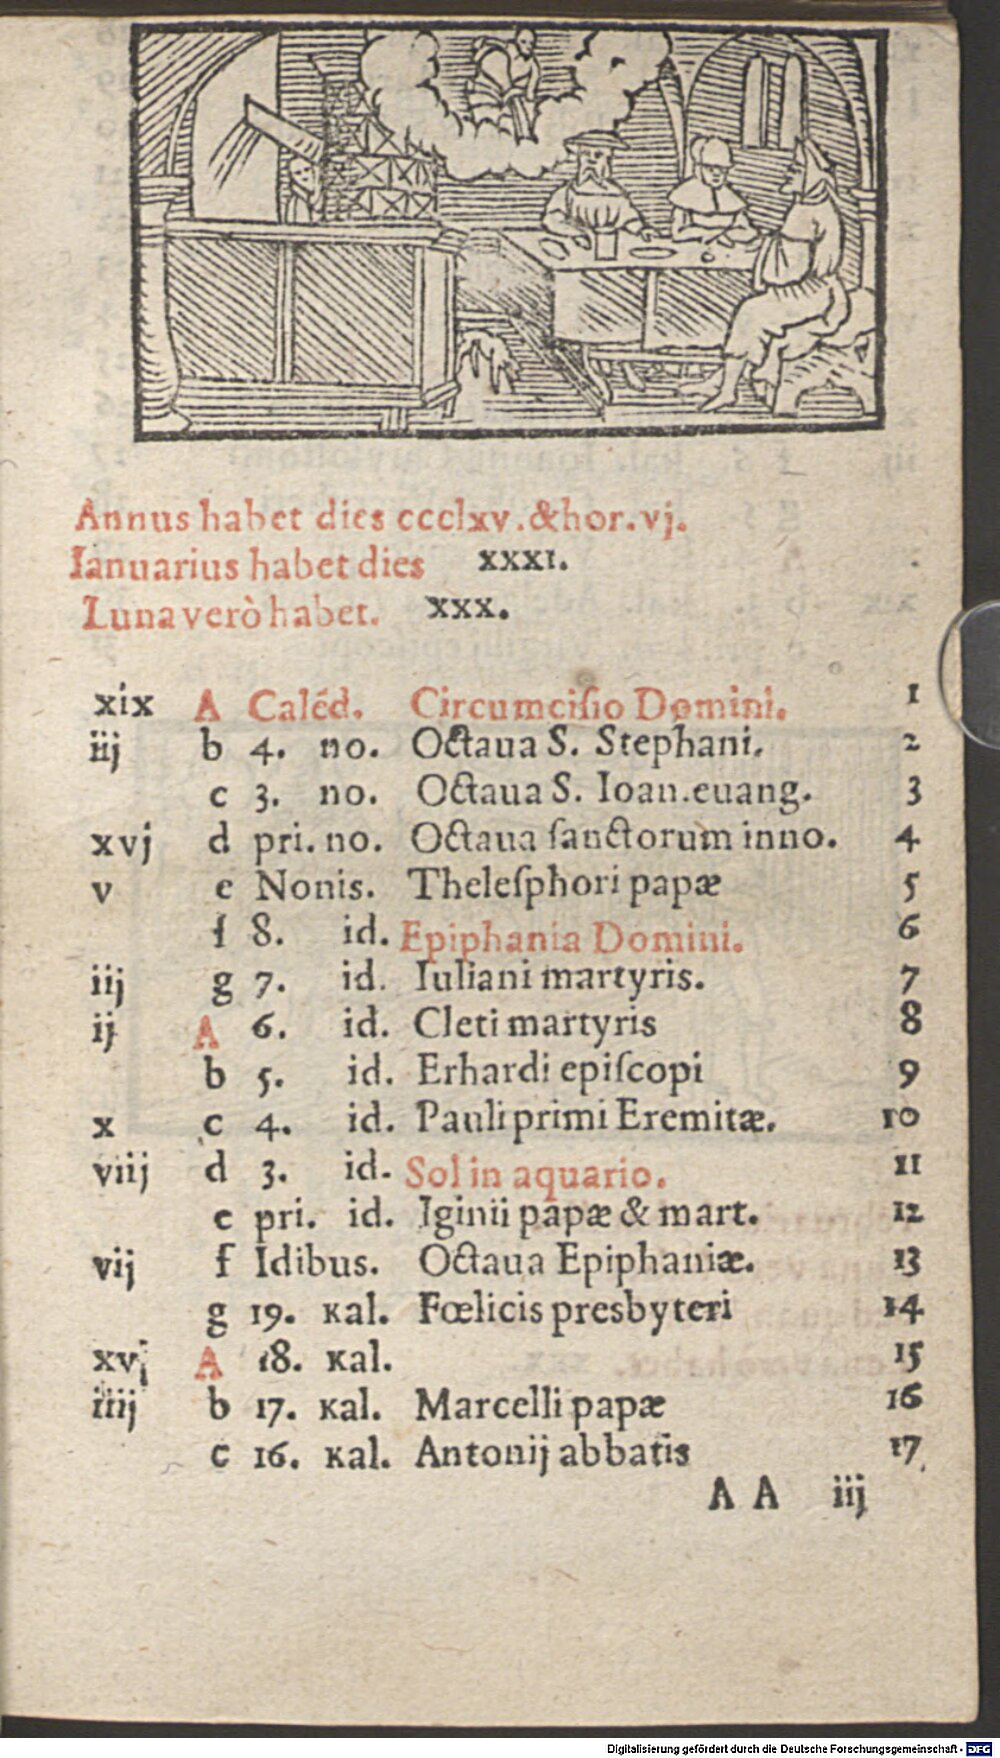 Annus habet dies ccclxv. & hor. vj.
Ianuarius habet dies xxxı.
Luna verò habet. xxx.
xix A Calẽd. Circumciſio Domini. 1
iij b 4. no. Octaua S. Stephani. 2
c 3. no. Octaua S. Ioan. euang. 3
xvj d pri. no. Octaua ſanctorum inno. 4
v e Nonis. Theleſphori papæ 5
f 8. id. Epiphania Domini. 6
iij g 7. id. Iuliani martyris. 7
ij A 6. id. Cleti martyris 8
b 5. id. Erhardi epiſcopi 9
x c 4. id. Pauli primi Eremitæ. 10
viij d 3. id. Sol in aquario. 11
e pri. id. Iginii papæ & mart. 12
vij f Idibus. Octaua Epiphaniæ. 13
g 19. kal. Fœlicis presbyteri 14
xvj A 18. kal. 15
iiij b 17. kal. Marcelli papæ 16
c 16. kal. Antonij abbatis 17
A A iij
Digitalisierung gefördert durch die Deutsche Forschungsgemeinschaft - DFG